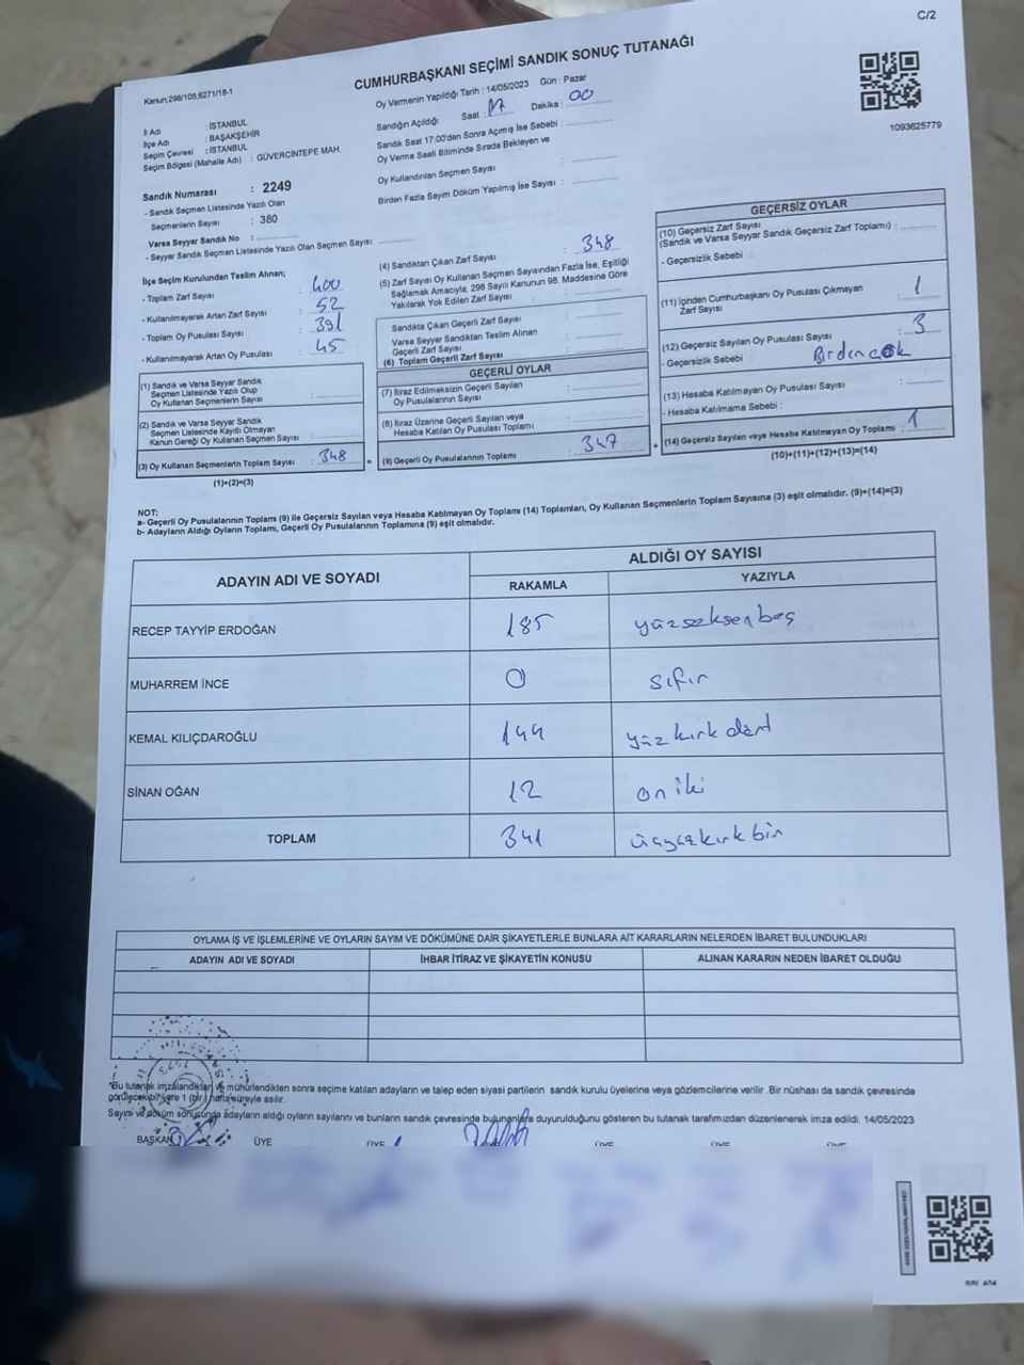 C/2
CUMHURBAŞKANI SEÇİMİ SANDIK SONUÇ TUTANAĞI
Kanun:298/108,6271/18-1
Oy Vermenin Yapıldığı Tarih : 14/05/2023 Gün : Pazar
Sandığın Açıldığı Saat : 17 Dakika : 00
Sandık Saat 17:00'den Sonra Açılmış İse Sebebi :
Oy Verme Saati Bitiminde Sırada Bekleyen ve
Oy Kullandırılan Seçmen Sayısı :
Birden Fazla Sayım Döküm Yapılmış İse Sayısı :
1093625779
İl Adı : İSTANBUL
İlçe Adı : BAŞAKŞEHİR
Seçim Çevresi : İSTANBUL
Seçim Bölgesi (Mahalle Adı) : GÜVERCİNTEPE MAH.
Sandık Numarası : 2249
- Sandık Seçmen Listesinde Yazılı Olan
Seçmenlerin Sayısı : 380
Varsa Seyyar Sandık No :
- Seyyar Sandık Seçmen Listesinde Yazılı Olan Seçmen Sayısı:
İlçe Seçim Kurulundan Teslim Alınan;
- Toplam Zarf Sayısı : 400
- Kullanılmayarak Artan Zarf Sayısı : 52
- Toplam Oy Pusulası Sayısı : 391
- Kullanılmayarak Artan Oy Pusulası : 45
(1) Sandık ve Varsa Seyyar Sandık
Seçmen Listesinde Yazılı Olup
Oy Kullanan Seçmenlerin Sayısı :
(2) Sandık ve Varsa Seyyar Sandık
Seçmen Listesinde Kayıtlı Olmayan
Kanun Gereği Oy Kullanan Seçmen Sayısı :
(3) Oy Kullanan Seçmenlerin Toplam Sayısı : 348
(1)+(2)=(3)
(4) Sandıktan Çıkan Zarf Sayısı : 348
(5) Zarf Sayısı Oy Kullanan Seçmen Sayısından Fazla İse, Eşitliği
Sağlamak Amacıyla, 298 Sayılı Kanunun 98. Maddesine Göre
Yakılarak Yok Edilen Zarf Sayısı :
Sandıkta Çıkan Geçerli Zarf Sayısı :
Varsa Seyyar Sandıktan Teslim Alınan
Geçerli Zarf Sayısı :
(6) Toplam Geçerli Zarf Sayısı :
GEÇERLİ OYLAR
(7) İtiraz Edilmeksizin Geçerli Sayılan
Oy Pusulalarının Sayısı :
(8) İtiraz Üzerine Geçerli Sayılan veya
Hesaba Katılan Oy Pusulası Toplamı :
(9) Geçerli Oy Pusulalarının Toplamı : 347
GEÇERSİZ OYLAR
(10) Geçersiz Zarf Sayısı
(Sandık ve Varsa Seyyar Sandık Geçersiz Zarf Toplamı) :
- Geçersizlik Sebebi
(11) İçinden Cumhurbaşkanı Oy Pusulası Çıkmayan
Zarf Sayısı : 1
(12) Geçersiz Sayılan Oy Pusulası Sayısı : 3
- Geçersizlik Sebebi : Birden çok
(13) Hesaba Katılmayan Oy Pusulası Sayısı :
- Hesaba Katılmama Sebebi :
(14) Geçersiz Sayılan veya Hesaba Katılmayan Oy Toplamı : 1
(10)+(11)+(12)+(13)=(14)
NOT:
a- Geçerli Oy Pusulalarının Toplam (9) ile Geçersiz Sayılan veya Hesaba Katılmayan Oy Toplam (14) Toplamları, Oy Kullanan Seçmenlerin Toplam Sayısına (3) eşit olmalıdır. (9)+(14)=(3)
b- Adayların Aldığı Oyların Toplamı, Geçerli Oy Pusulalarının Toplamına (9) eşit olmalıdır.
ADAYIN ADI VE SOYADI
ALDIĞI OY SAYISI
RAKAMLA YAZIYLA
RECEP TAYYİP ERDOĞAN 185 yüzseksenbeş
MUHARREM İNCE 0 sıfır
KEMAL KILIÇDAROĞLU 144 yüz kırk dört
SİNAN OĞAN 12 on iki
TOPLAM 341 üçyüzkırk bir
OYLAMA İŞ VE İŞLEMLERİNE VE OYLARIN SAYIM VE DÖKÜMÜNE DAİR ŞİKAYETLERLE BUNLARA AİT KARARLARIN NELERDEN İBARET BULUNDUKLARI
ADAYIN ADI VE SOYADI İHBAR İTİRAZ VE ŞİKAYETİN KONUSU ALINAN KARARIN NEDEN İBARET OLDUĞU
*Bu tutanak imzalandıktan ve mühürlendikten sonra seçime katılan adayların ve talep eden siyasi partilerin sandık kurulu üyelerine veya gözlemcilerine verilir. Bir nüshası da sandık çevresinde
görülecek bir yere 1 (bir) hafta süreyle asılır.
Sayım ve döküm sonucunda adayların aldığı oyların sayılarını ve bunların sandık çevresinde bulunanlara duyurulduğunu gösteren bu tutanak tarafımızdan düzenlenerek imza edildi. 14/05/2023
BAŞKAN ÜYE ÜYE ÜYE ÜYE ÜYE